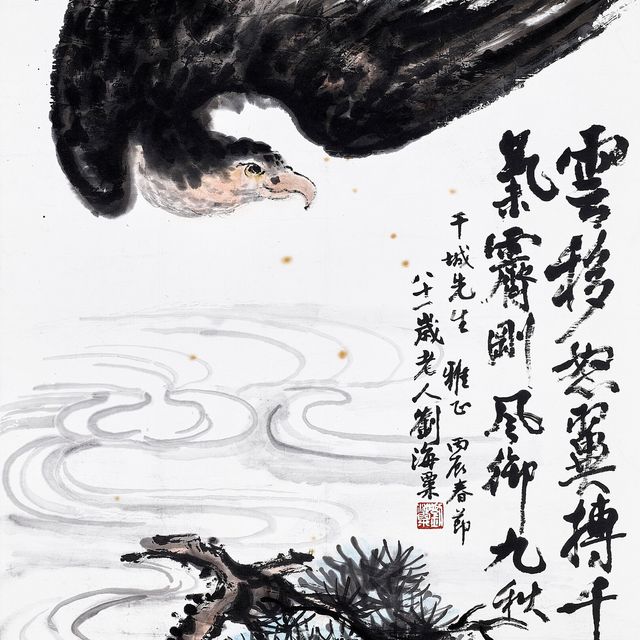 雲移怒翼搏千
氣霽剛風御九秋
千城先生 雅正 丙辰春節
八十一歲老人劉海粟